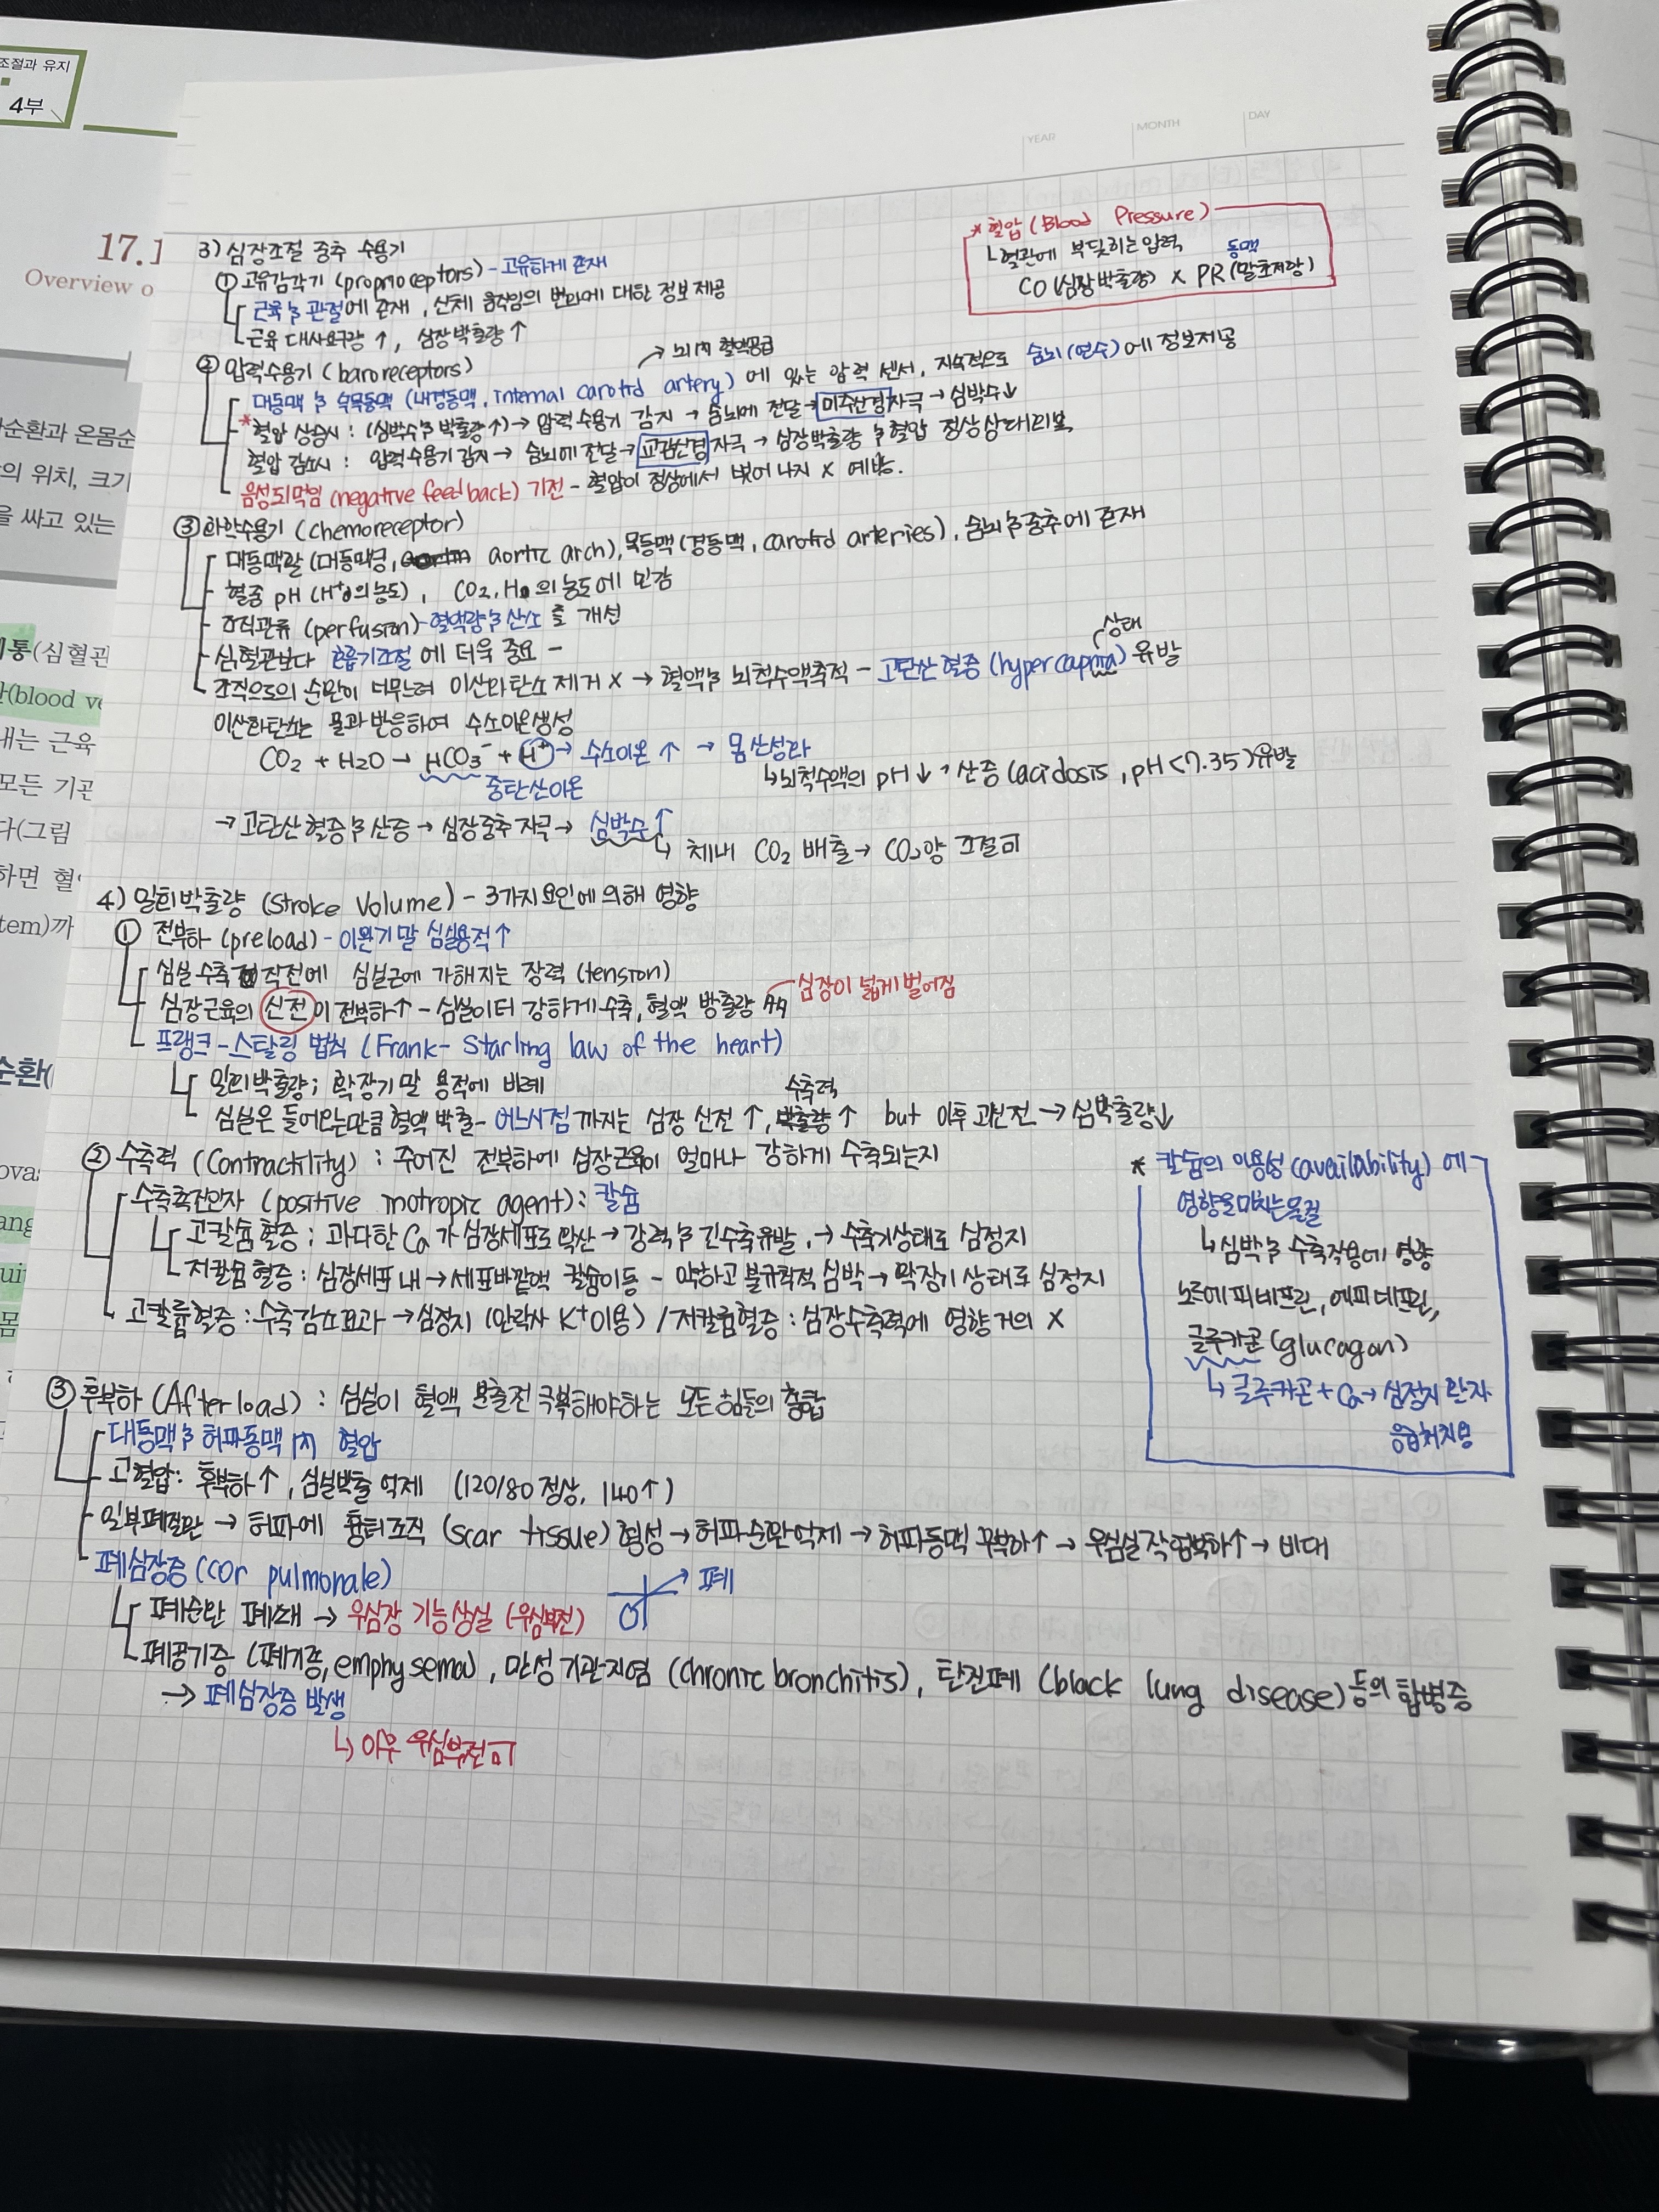 조절과 유지
4부
17.1
Overview o
순환과 온몸순
의 위치, 크기
을 싸고 있는
통(심혈관
(blood ve
내는 근육
모든 기관
다(그림
하면 혈
tem)까
순환(
YEAR
MONTH
DAY
* 혈압 (Blood Pressure)
↳ 혈관에 부딪히는 압력
동맥
CO (심장박출량) x PR (말초저항)
3) 심장조절 중추 수용기
① 고유감각기 (proprioceptors) - 고유하게 존재
근육 및 관절에 존재, 신체 움직임의 변화에 대한 정보 제공
근육 대사요구량 ↑, 심장박출량 ↑
→ 뇌 内 혈액공급
② 압력수용기 (baroreceptors)
대동맥 및 속목동맥 (내경동맥, internal carotid artery) 에 있는 압력 센서, 지속적으로 숨뇌(연수)에 정보제공
* 혈압 상승시 : (심박수 및 박출량 ↑) → 압력수용기 감지 → 숨뇌에 전달 → 미주신경 자극 → 심박수↓
혈압 감소시 : 압력수용기 감지 → 숨뇌에 전달 → 교감신경 자극 → 심장박출량 및 혈압 정상상태 회복
음성되먹임 (negative feedback) 기전 - 혈압이 정상에서 벗어나지 x 예방.
③ 화학수용기 (chemoreceptor)
대동맥활 (대동맥궁, aortic arch), 목동맥 (경동맥, carotid arteries), 숨뇌 및 중추에 존재
혈중 pH (H⁺의 농도), CO2, 의 농도에 민감
조직관류 (perfusion) - 혈액량 및 산소 를 개선
심혈관보다 호흡기조절 에 더욱 중요 -
상태
조직으로의 순환이 너무느려 이산화탄소 제거 x → 혈액 및 뇌척수액축적 - 고탄산혈증 (hypercapnia) 유발
이산화탄소는 물과 반응하여 수소이온생성
CO2 + H2O → HCO3⁻ + H⁺ → 수소이온 ↑ → 몸 산성화
중탄산이온
↳ 뇌척수액의 pH ↓, 산증 (acidosis, pH<7.35) 유발
→ 고탄산혈증 및 산증 → 심장중추 자극 → 심박수 ↑
↳ 체내 CO2 배출 → CO2양 조절 可
4) 일회박출량 (Stroke Volume) - 3가지 요인에 의해 영향
① 전부하 (preload) - 이완기말 심실용적 ↑
심실 수축 시작전에 심실근에 가해지는 장력 (tension)
심장근육의 신전 이 전부하↑ - 심실이 더 강하게 수축, 혈액 방출량 多
심장이 넓게 벌어짐
프랭크-스탈링 법칙 (Frank-Starling law of the heart)
일회박출량; 확장기말 용적에 비례
수축력
심실은 들어오는만큼 혈액 박출 - 어느시점 까지는 심장 신전 ↑, 박출량 ↑ but 이후 과신전 → 심박출량↓
② 수축력 (Contractility) : 주어진 전부하에 심장근육이 얼마나 강하게 수축되는지
수축촉진인자 (positive inotropic agent) : 칼슘
고칼슘혈증 ; 과다한 Ca 가 심장세포로 확산 → 강력 및 긴수축유발, → 수축기상태로 심정지
저칼슘혈증 : 심장세포 내 → 세포바깥액 칼슘이동 - 약하고 불규칙적 심박 → 확장기 상태로 심정지
고칼륨혈증 : 수축감소효과 → 심정지 (안락사 K⁺이용) / 저칼륨혈증 : 심장수축력에 영향 거의 X
* 칼슘의 이용성 (availability) 에
영향을 미치는 물질
↳ 심박 및 수축작용에 영향
노르에피네프린, 에피네프린,
글루카곤 (glucagon)
↳ 글루카곤 + Ca → 심정지 환자
응급처치용
③ 후부하 (Afterload) : 심실이 혈액 분출전 극복해야하는 모든 힘들의 총합
대동맥 및 허파동맥 内 혈압
고혈압 : 후부하 ↑, 심실박출 억제 (120/80 정상, 140↑)
일부폐질환 → 허파에 흉터조직 (scar tissue) 형성 → 허파순환억제 → 허파동맥 후부하↑ → 우심실 작업부하↑ → 비대
폐심장증 (cor pulmonale)
→ 폐
폐순환 폐쇄 → 우심장 기능상실 (우심부전)
폐공기증 (폐기종, emphysema), 만성기관지염 (chronic bronchitis), 탄진폐 (black lung disease) 등의 합병증
→ 폐심장증 발생
↳ 이후 우심부전 可